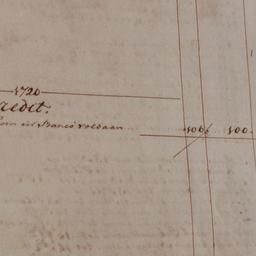 1720
redit.
in Banco voldaan 106 100.